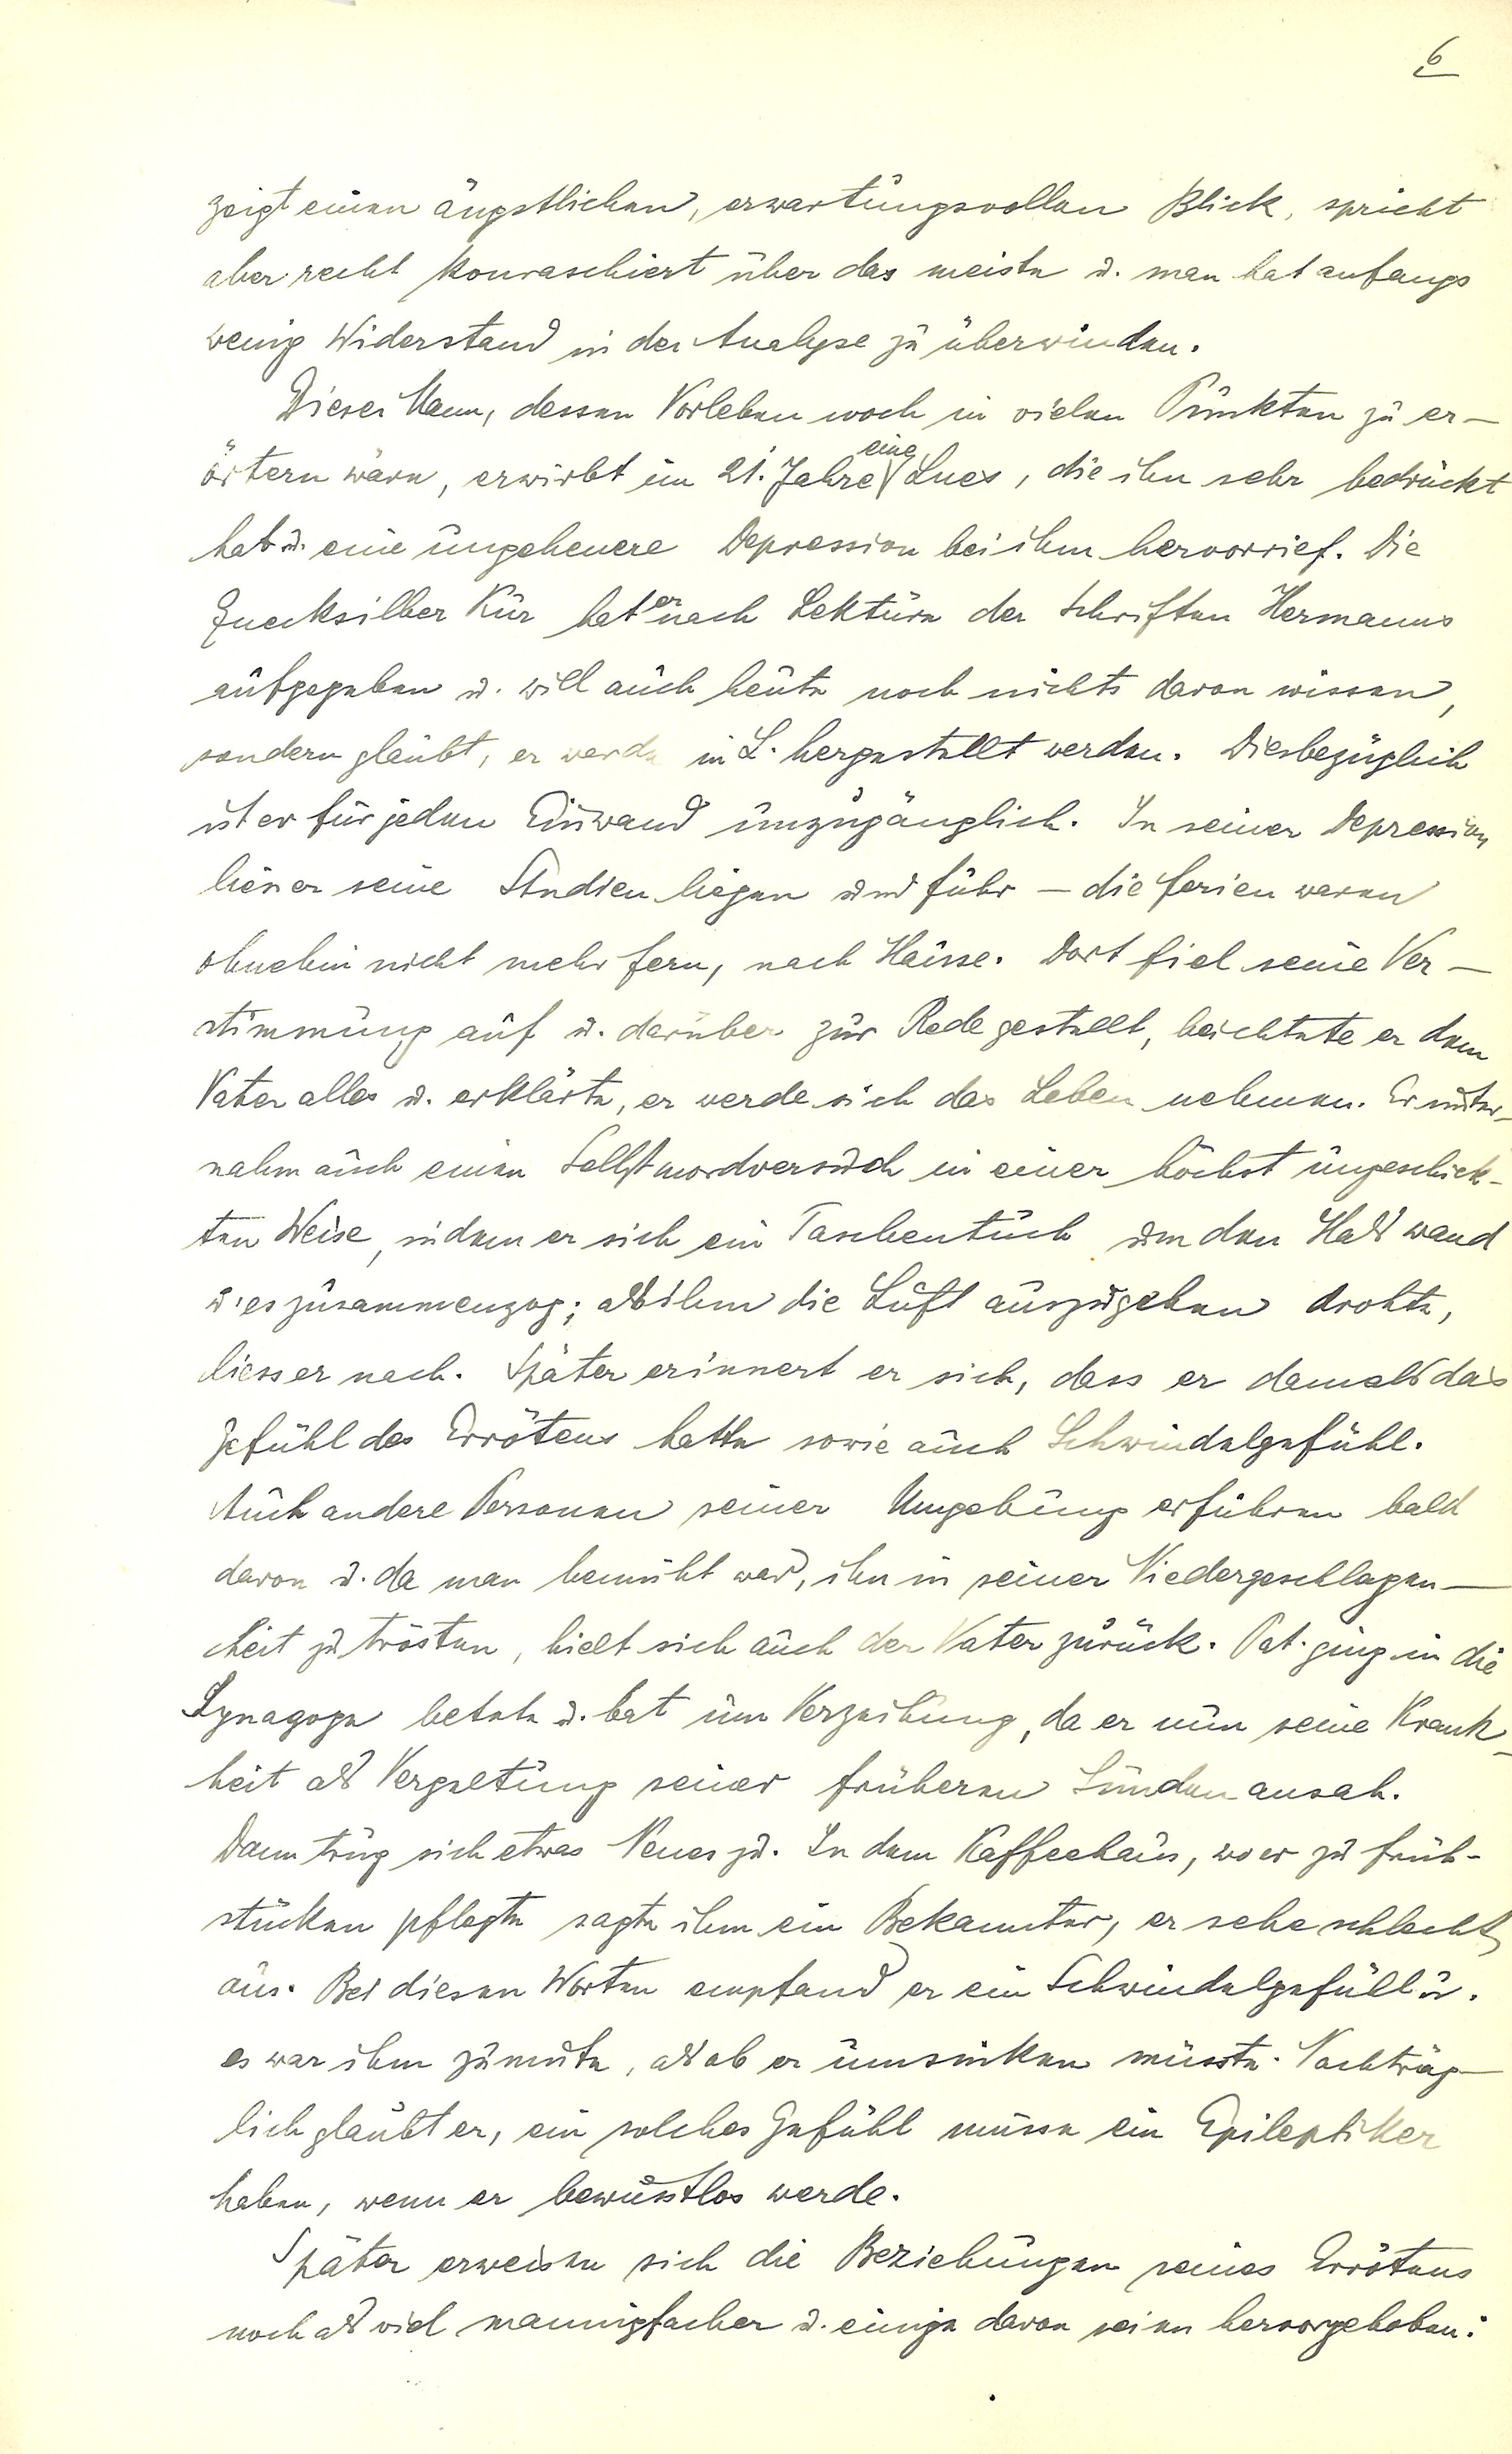 6
zeigt einen ängstlichen, erwartungsvollen Blick, spricht
aber recht kouraschiert über das meiste u. man hat anfangs
wenig Widerstand in der Analyse zu überwinden.
Dieser Mann, dessen Vorleben noch in vielen Punkten zu er-
örtern wäre, erwirbt im 21. Jahre eine Lues, die ihn sehr bedrückt
hat u. eine ungeheuere Depression bei ihm hervorrief. Die
Quecksilber Kur hat er nach Lektüre der Schriften Hermanns
aufgegeben u. will auch heute noch nichts davon wissen,
sondern glaubt, er werde in L. hergestellt werden. Diesbezüglich
ist er für jeden Einwand unzugänglich. In seiner Depression
liess er seine Studien liegen und fuhr – die Ferien waren
ohnehin nicht mehr fern, nach Hause. Dort fiel seine Ver-
stimmung auf u. darüber zur Rede gestellt, beichtete er dem
Vater alles u. erklärte, er werde sich das Leben nehmen. Er unter-
nahm auch einen Selbstmordversuch in einer höchst ungeschick-
ten Weise, indem er sich ein Taschentuch um den Hals wand
u. es zusammenzog; als ihm die Luft auszugehen drohte,
liess er nach. Später erinnert er sich, dass er damals das
Gefühl des Errötens hatte sowie auch Schwindelgefühl.
Auch andere Personen seiner Umgebung erfuhren bald
davon u. da man bemüht war, ihn in seiner Niedergeschlagen-
heit zu trösten, hielt sich auch der Vater zurück. Pat. ging in die
Synagoge betete u. bat um Verzeihung, da er nun seine Krank-
heit als Vergeltung seiner früheren Sünden ansah.
Dann trug sich etwas Neues zu. In dem Kaffeehaus, wo er zu früh-
stücken pflegte sagte ihm ein Bekannter, er sehe schlecht
aus. Bei diesen Worten empfand er ein Schwindelgefühl u.
es war ihm zumute, als ob er umsinken müsste. Nachträg-
lich glaubt er, ein solches Gefühl müsse ein Epileptiker
haben, wenn er bewusstlos werde.
Später erweisen sich die Beziehungen seines Errötens
noch als viel mannigfacher u. einige davon seien hervorgehoben: